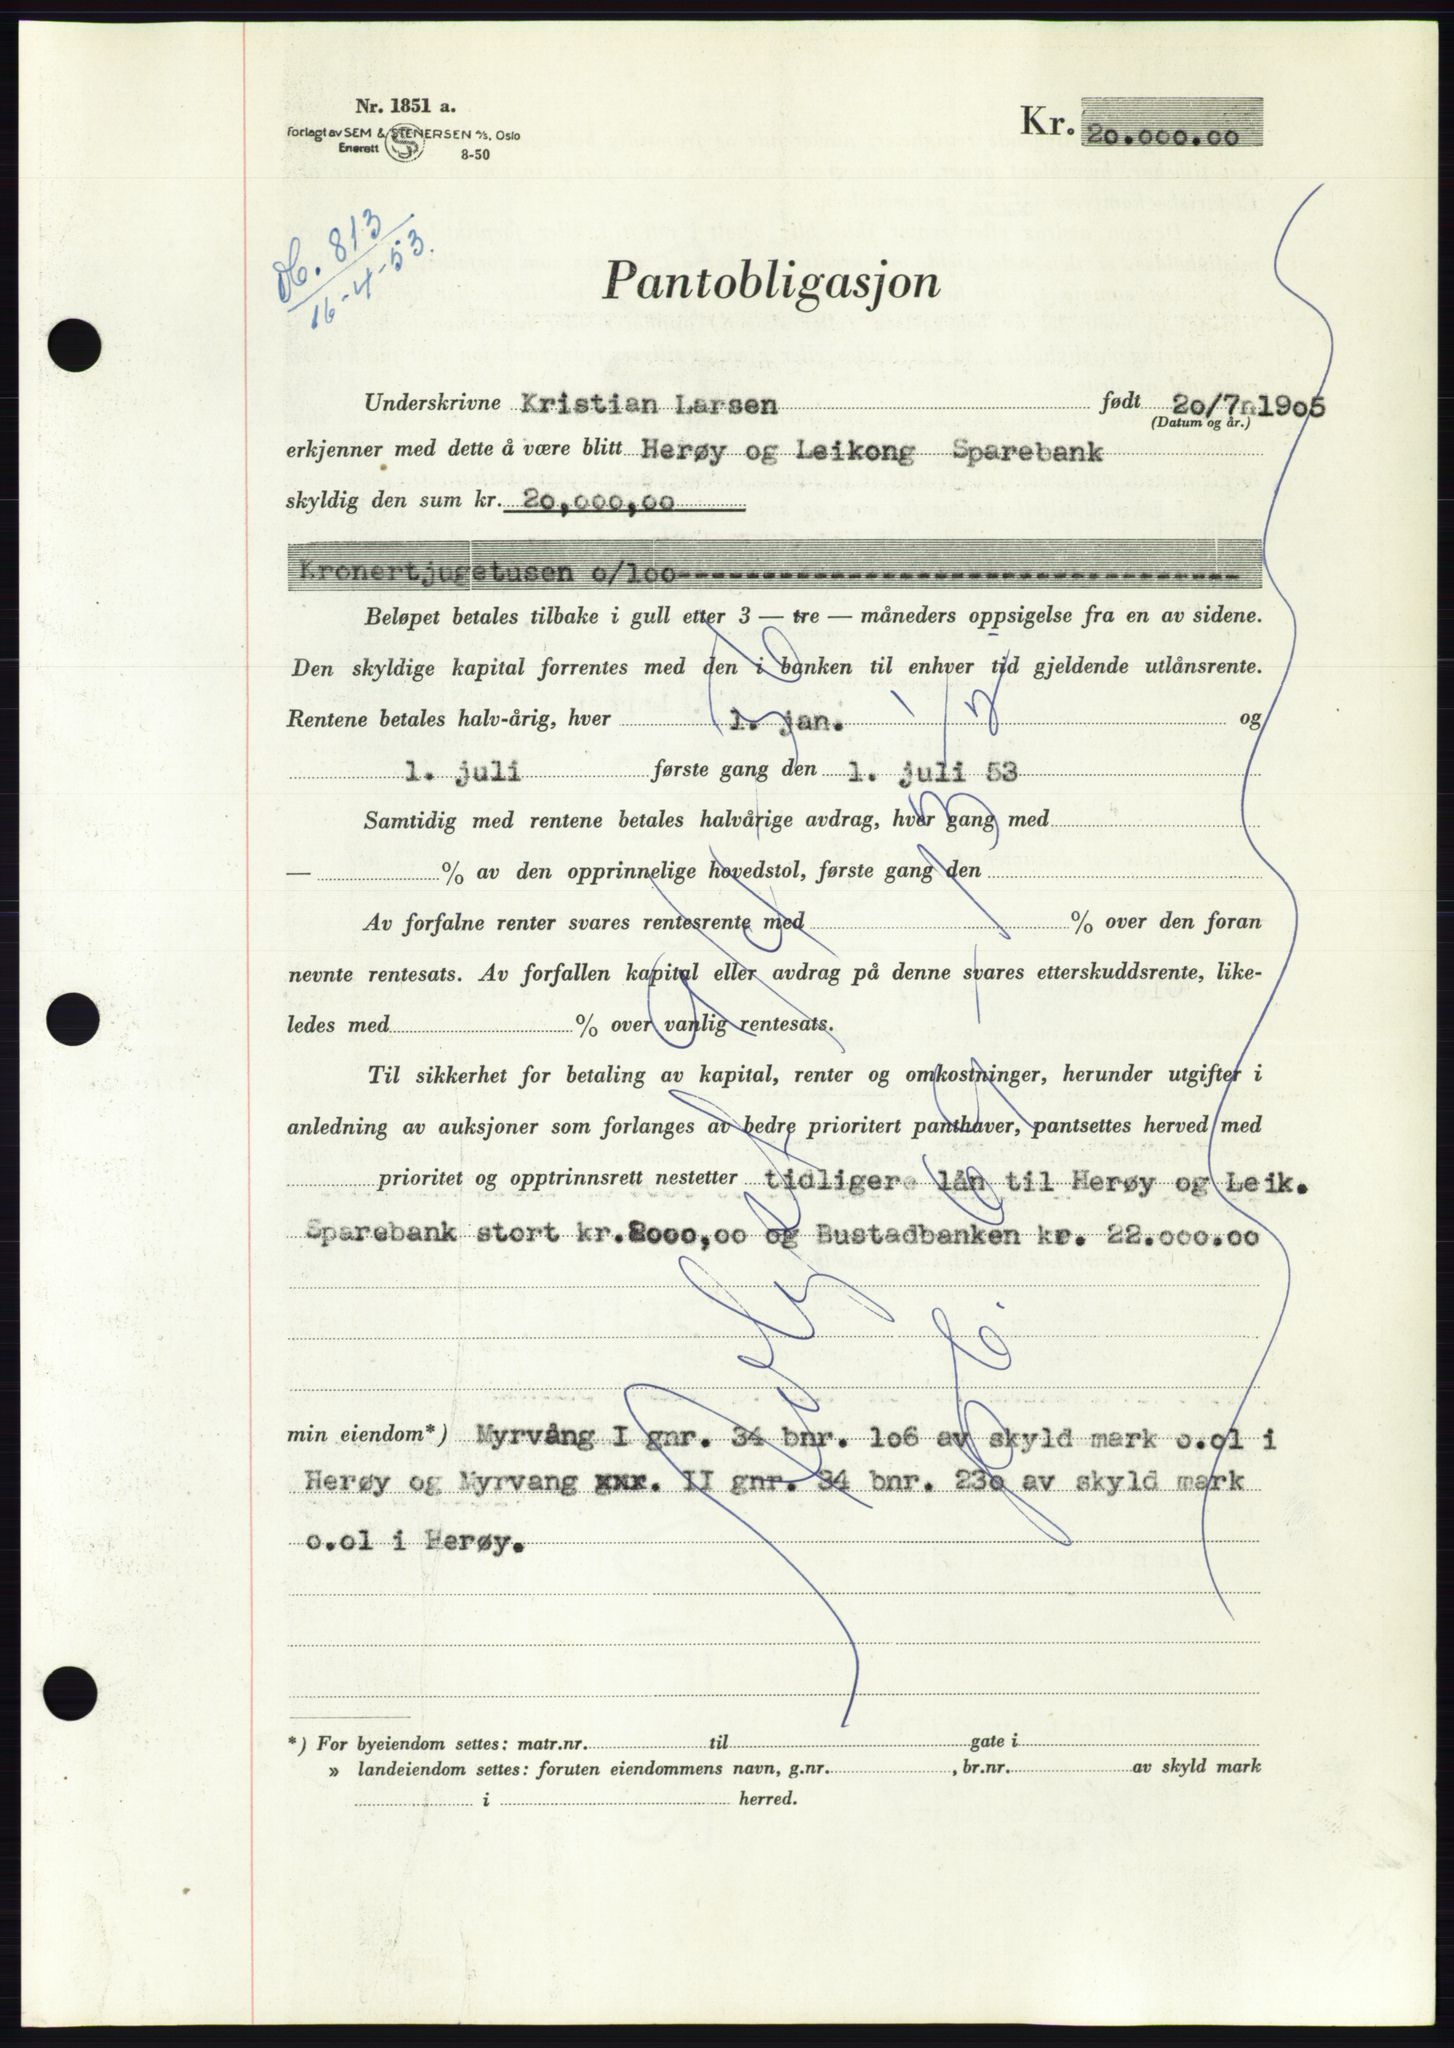 Nr. 1851 a.
Forlagt av SEM & STENERSEN A/S, Oslo
Enerett
8-50
Kr. 20.000.00
Db. 813
16-4-53.
Pantobligasjon
Underskrivne Kristian Larsen født 20/7n1905
(Datum og år.)
erkjenner med dette å være blitt Herøy og Leikong Sparebank
skyldig den sum kr. 20,000,00
Kronertjugetusen o/loo-----------------------------------
Beløpet betales tilbake i gull etter 3 — tre — måneders oppsigelse fra en av sidene.
Den skyldige kapital forrentes med den i banken til enhver tid gjeldende utlånsrente.
Rentene betales halv-årig, hver 1. jan. og
1. juli første gang den 1. juli 53
Samtidig med rentene betales halvårige avdrag, hver gang med
— % av den opprinnelige hovedstol, første gang den
Av forfalne renter svares rentesrente med % over den foran
nevnte rentesats. Av forfallen kapital eller avdrag på denne svares etterskuddsrente, like-
ledes med % over vanlig rentesats.
Til sikkerhet for betaling av kapital, renter og omkostninger, herunder utgifter i
anledning av auksjoner som forlanges av bedre prioritert panthaver, pantsettes herved med
prioritet og opptrinnsrett nestetter tidligere lån til Herøy og Leik.
Sparebank stort kr.8000,00 og Bustadbanken kr. 22.000.00
min eiendom*) Myrvång I gnr. 34 bnr. 106 av skyld mark o.ol i
Herøy og Myrvang xxx. II gnr. 34 bnr. 230 av skyld mark
o.ol i Herøy.
*) For byeiendom settes: matr.nr. til gate i
» landeiendom settes: foruten eiendommens navn, g.nr. , br.nr. av skyld mark
i herred.